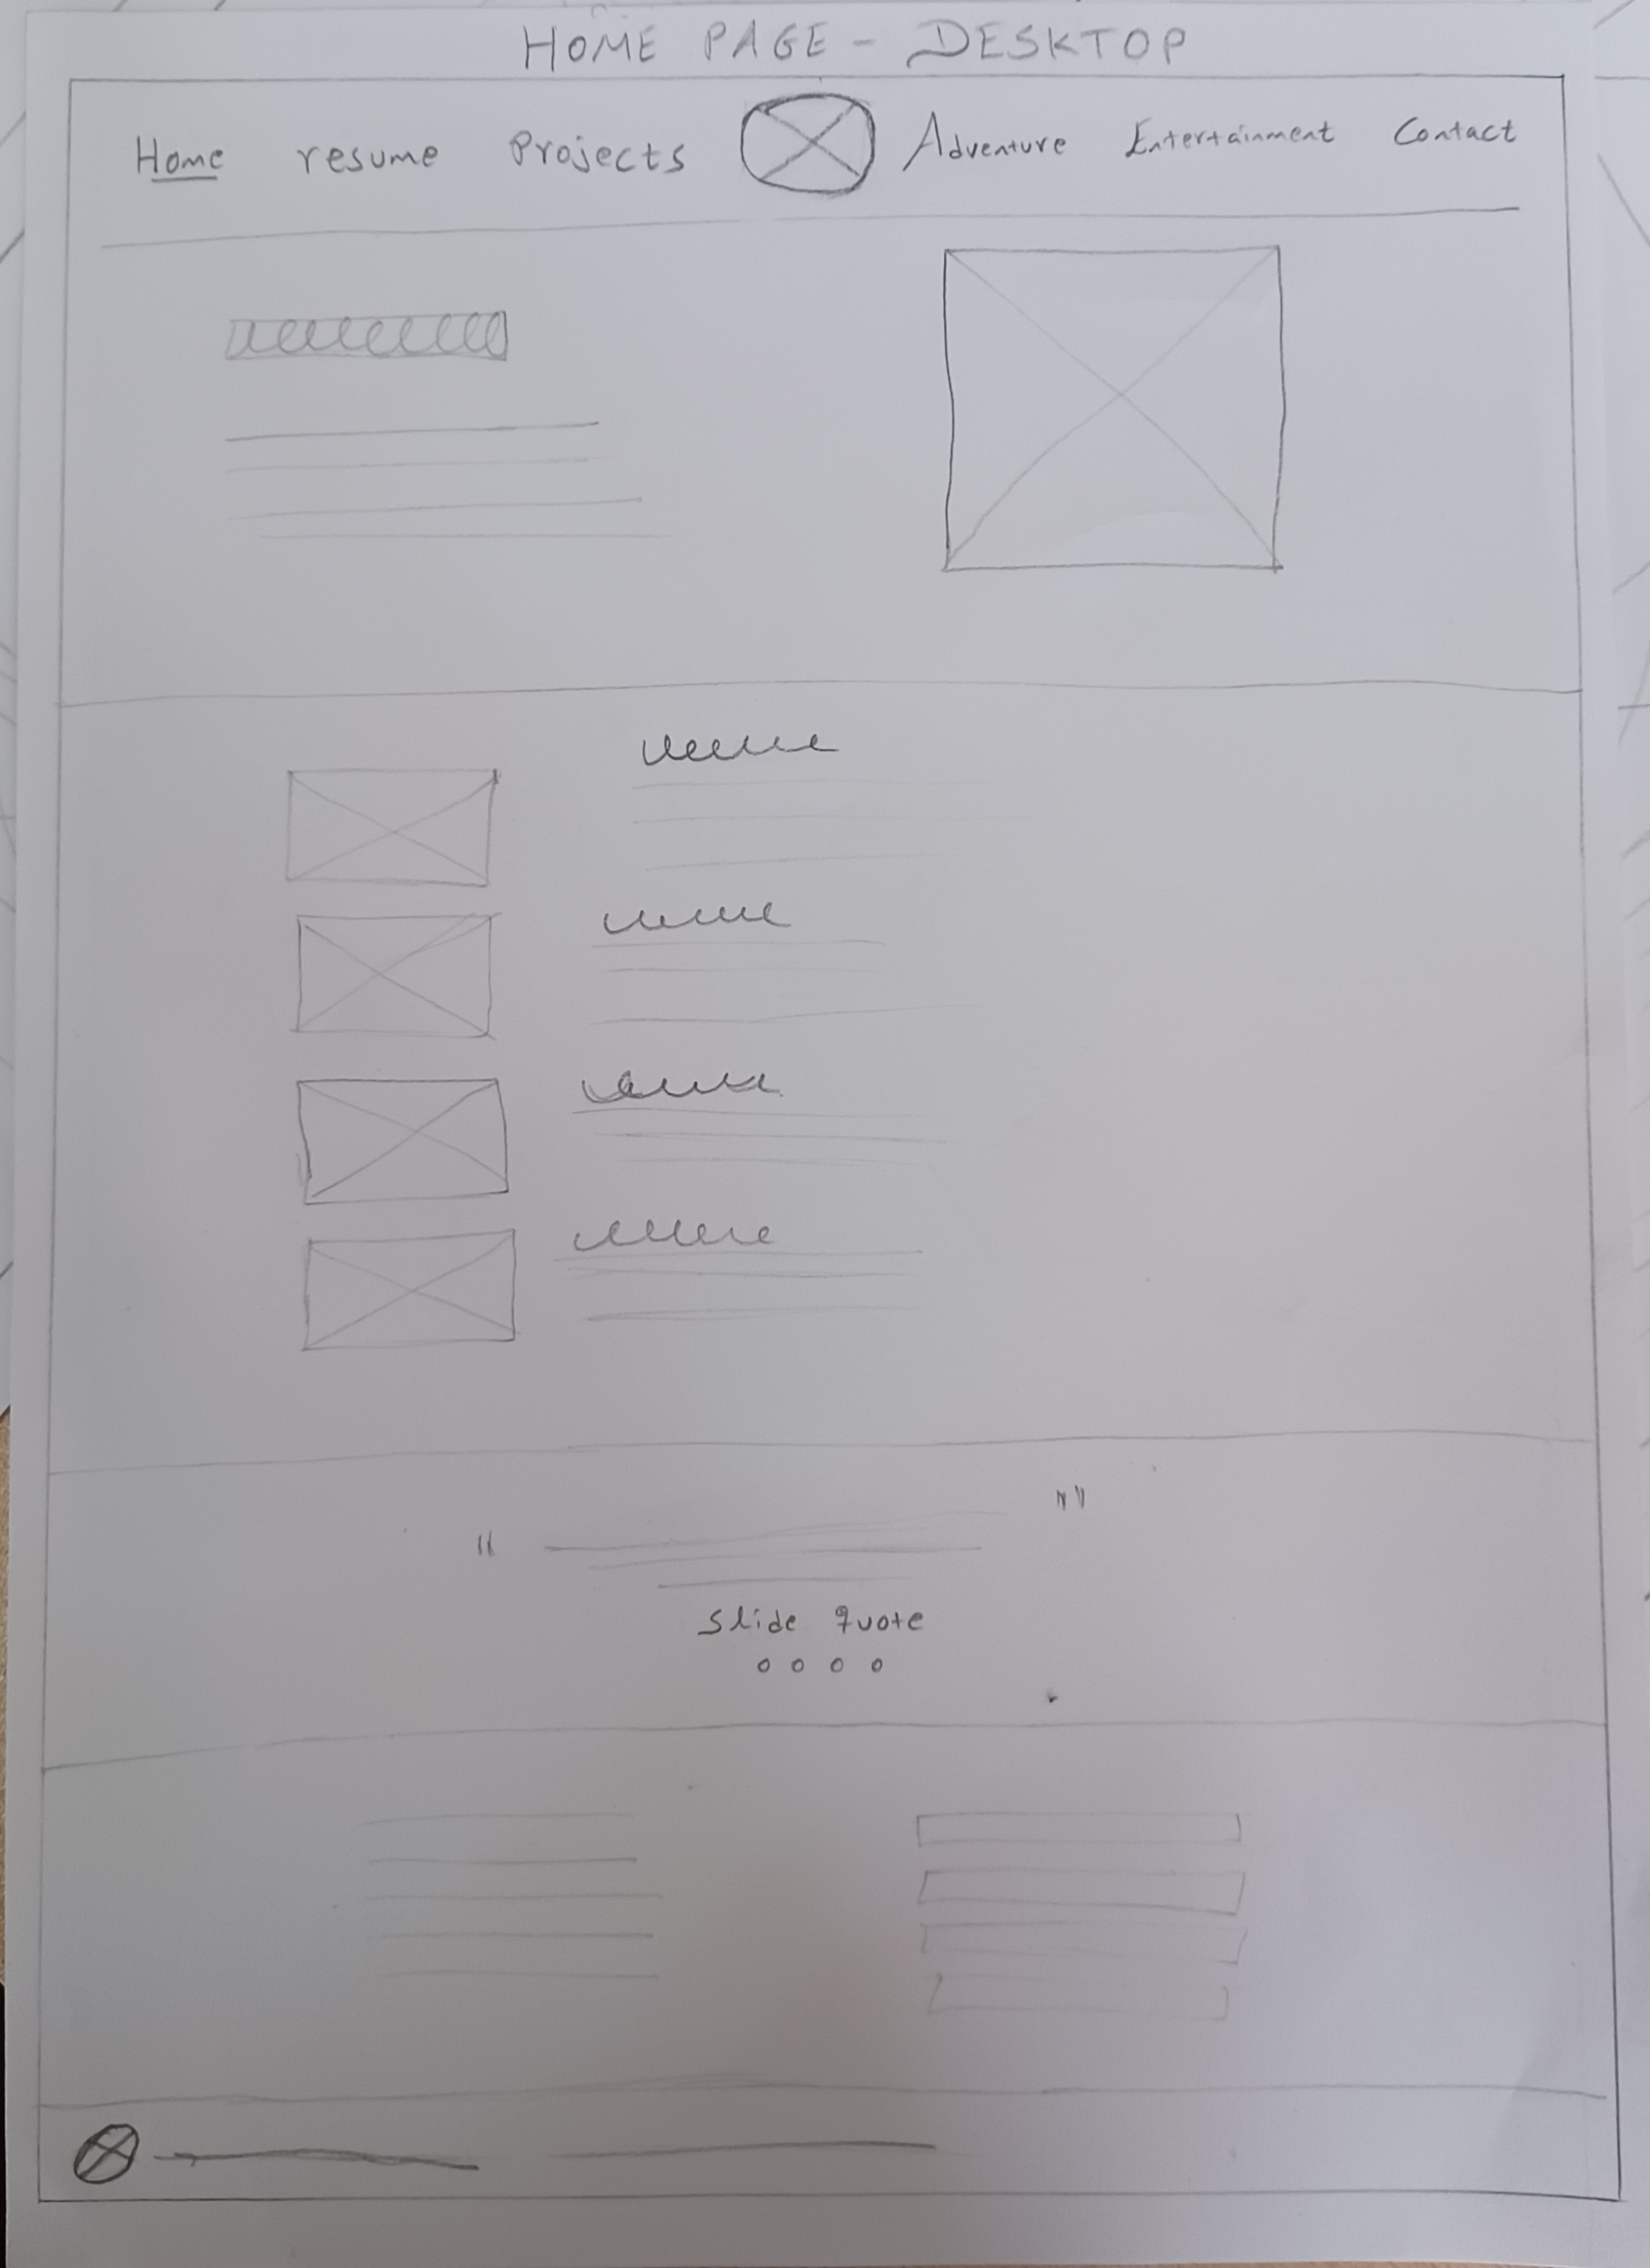 HOME PAGE - DESKTOP
Home resume Projects Adventure Entertainment Contact
" "
Slide quote